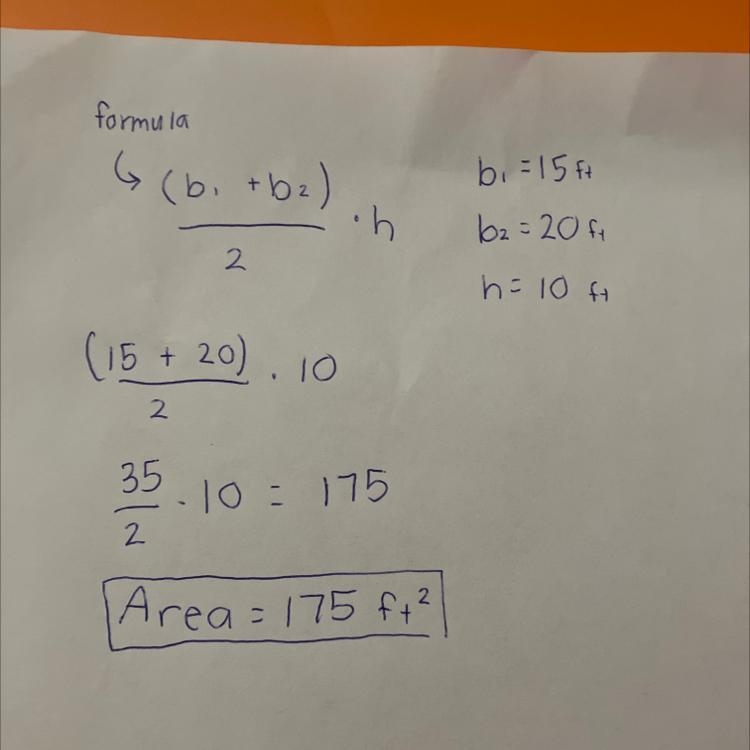 formula
↳ (b₁ + b₂)/2 · h
b₁ = 15 ft
b₂ = 20 ft
h = 10 ft
(15 + 20)/2 · 10
35/2 · 10 = 175
Area = 175 ft²